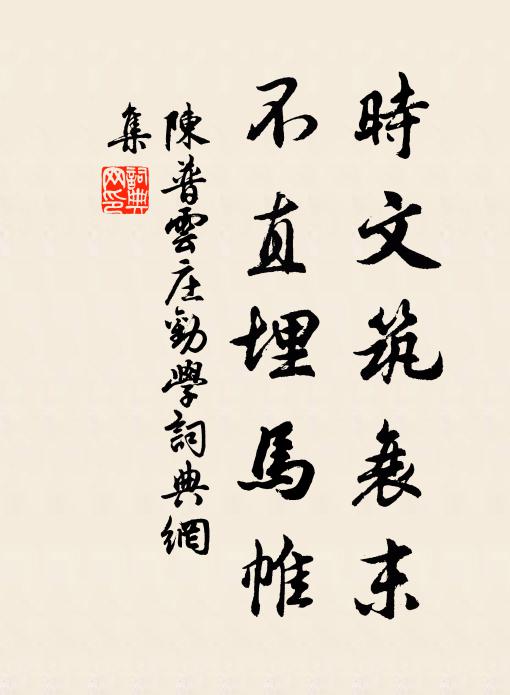 時文筑衰末
不直埋馬帷
陳普雲庄勸學詞典網
集
詞典
网印